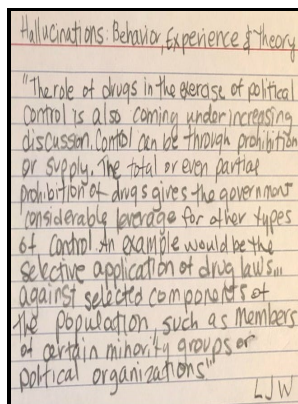 Hallucinations: Behavior, Experience & Theory
"The role of drugs in the exercise of political
control is also coming under increasing
discussion. Contol can be through prohibition
or supply. The total or even partial
prohibition of drugs gives the government
considerable leverage for other types
of control. An example would be the
selective application of drug laws...
against selected components of
the population, such as members
of certain minority groups or
political organizations"
LJW